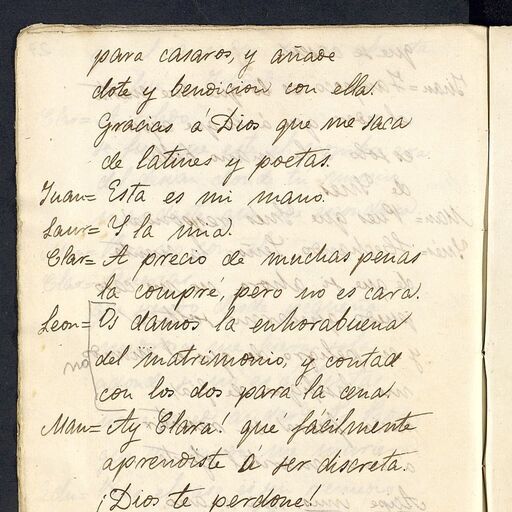 para casaros, y añade
dote y bendicion con ella.
Gracias á Dios que me saca
de latines y poetas.
Juan= Esta es mi mano.
Laur= Y la mia.
Clar= A precio de muchas penas
la compré, pero no es cara.
Leon= Os damos la enhorabuena
del matrimonio, y contad
con los dos para la cena.
Man= Ay Clara! qué fácilmente
aprendiste á ser discreta.
¡Dios te perdone!